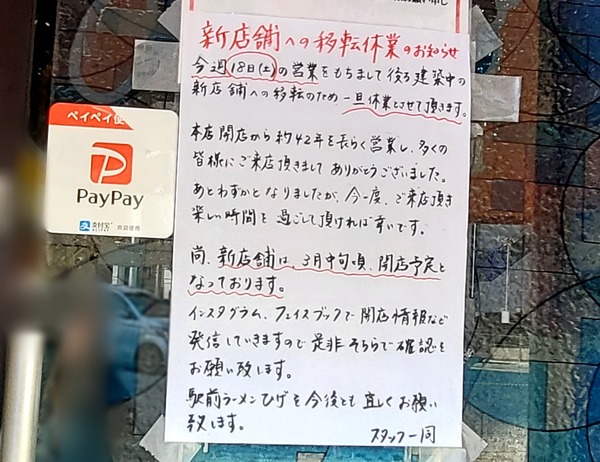 新店舗への移転休業のお知らせ
今週18日(土)の営業をもちまして後ろ建築中の
新店舗への移転のため一旦休業とさせて頂きます。
本店開店から約42年を長らく営業し、多くの
皆様にご来店頂きまして ありがとうございました。
あとわずかとなりましたが、今一度、ご来店頂き
楽しい時間を過ごして頂ければ幸いです。
尚、新店舗は、3月中旬頃、開店予定と
なっております。
インスタグラム、フェイスブックで開店情報など
発信していきますので是非そちらで確認を
お願い致します。
駅前ラーメンひげを今後とも宜しくお願い
致します。
スタッフ一同
ペイペイ使
PayPay
支付宝
欢迎使用